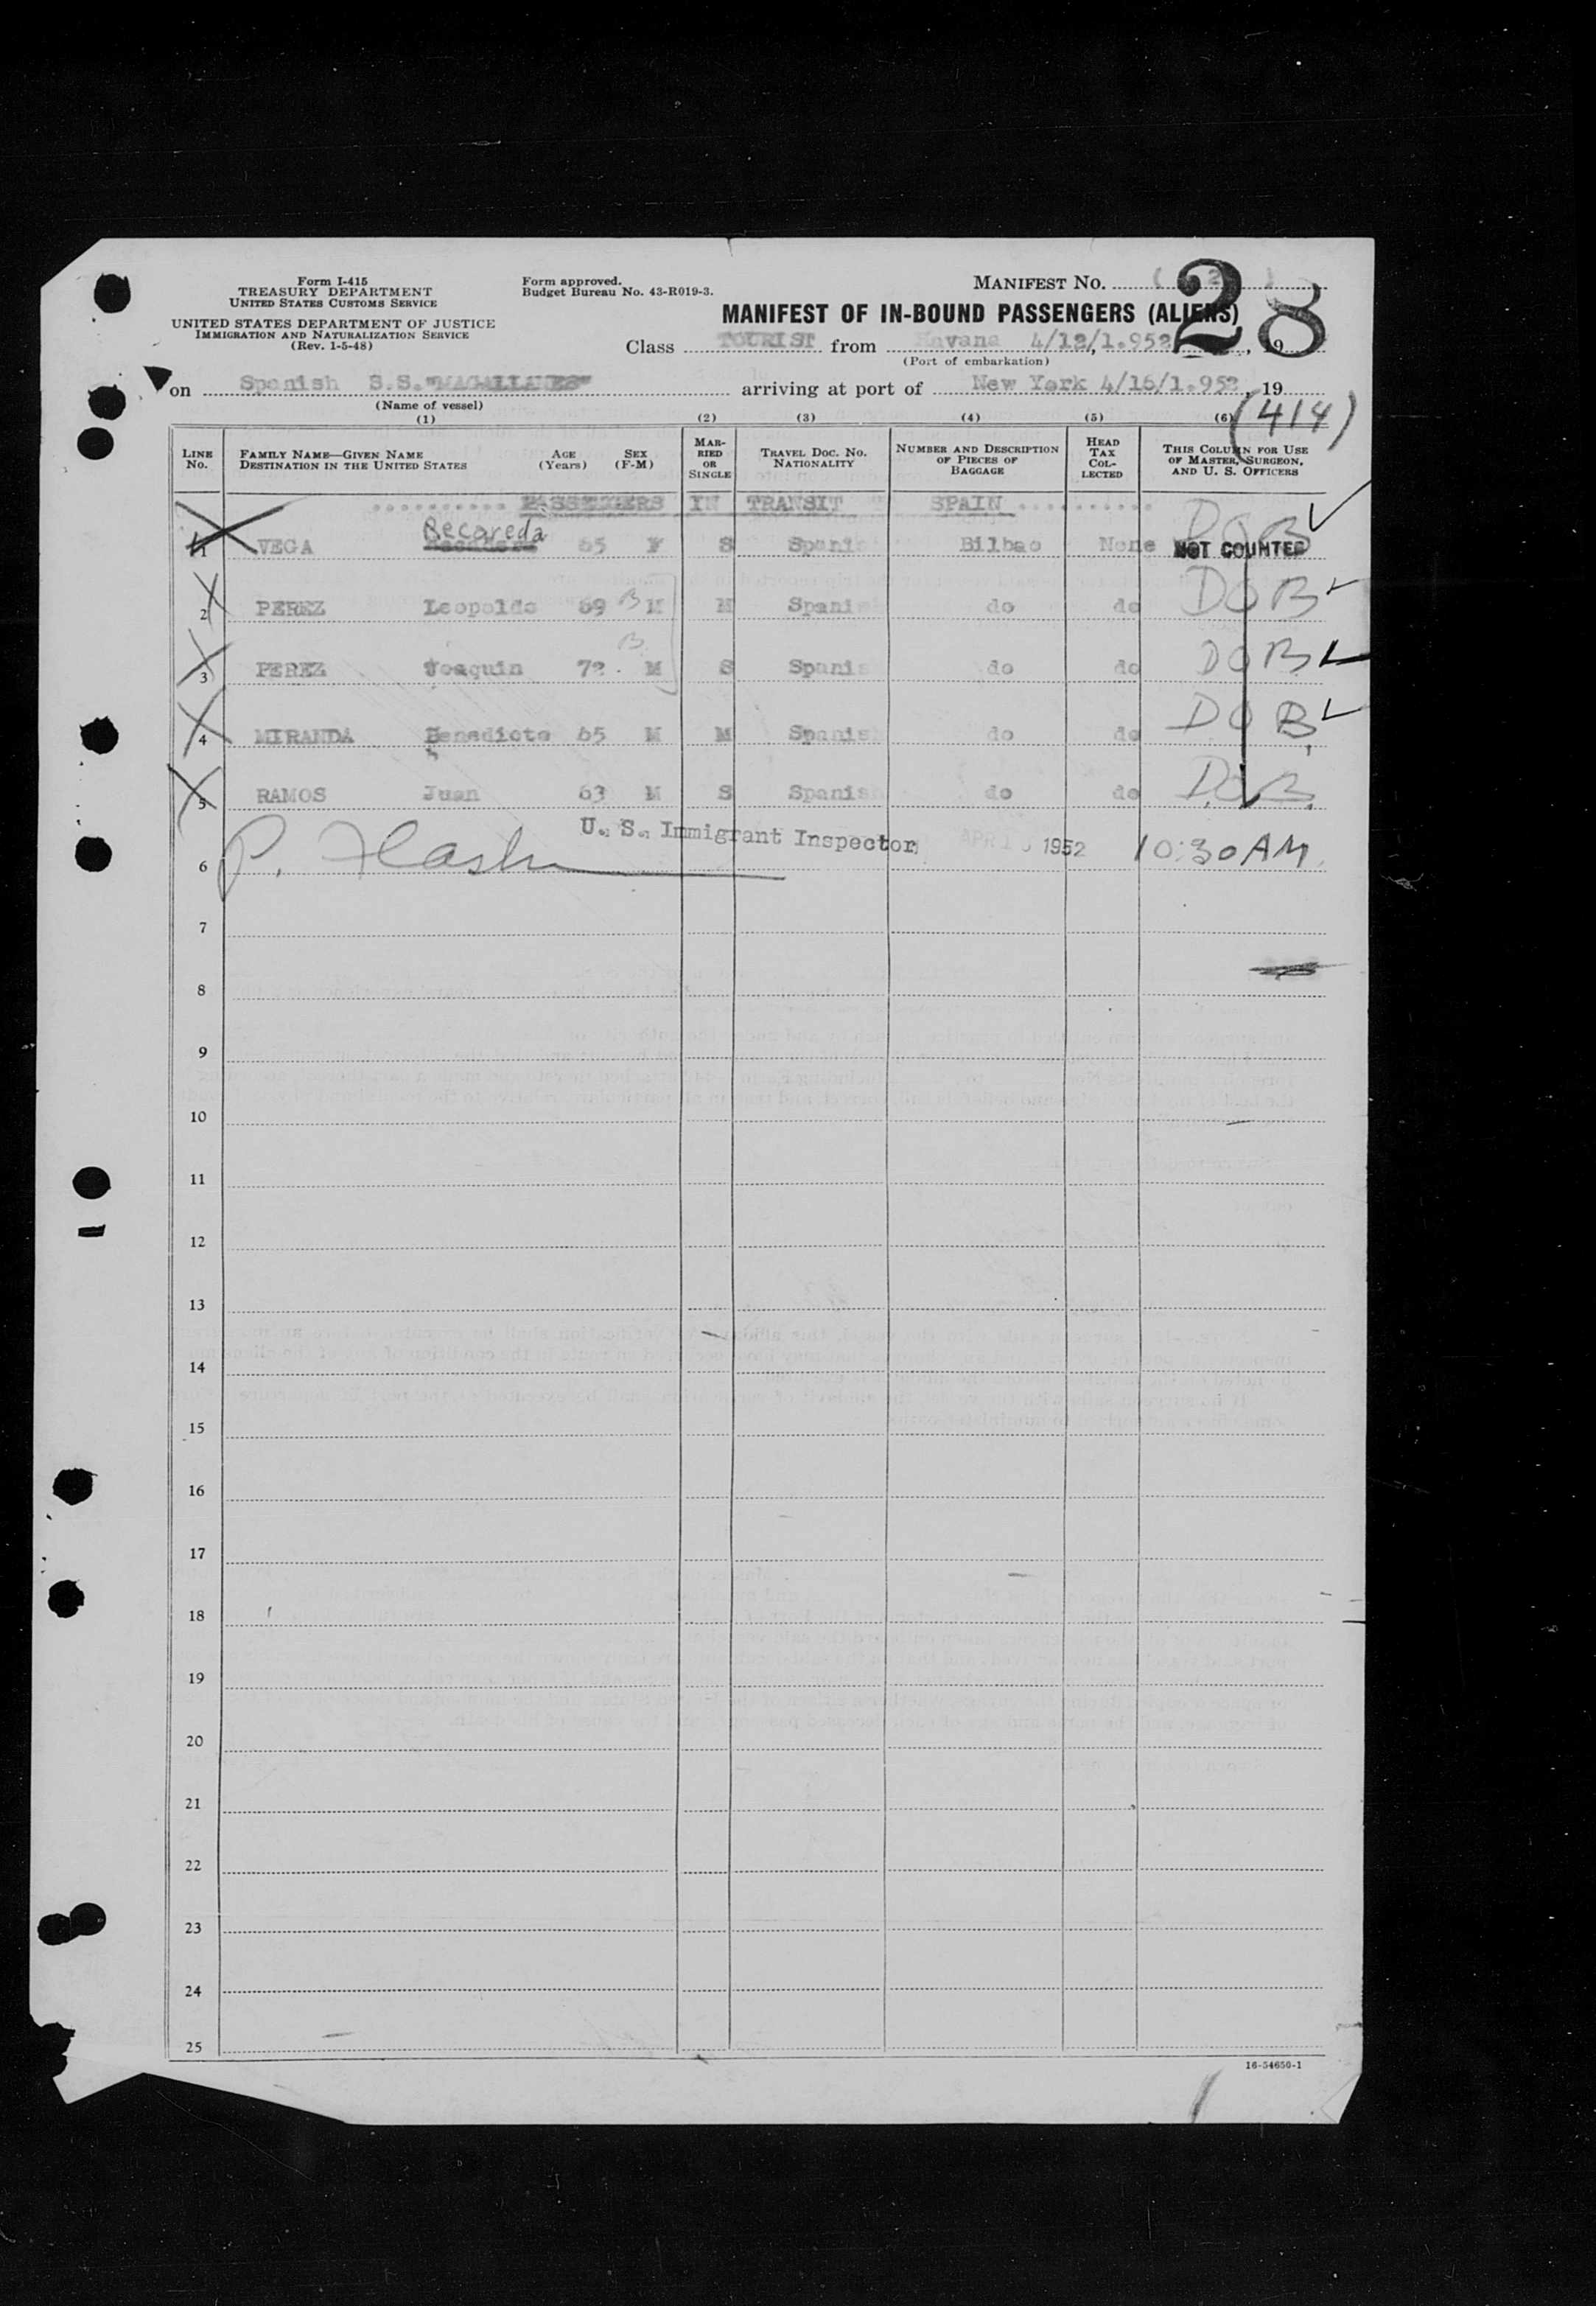 Form I-415
TREASURY DEPARTMENT
UNITED STATES CUSTOMS SERVICE
UNITED STATES DEPARTMENT OF JUSTICE
IMMIGRATION AND NATURALIZATION SERVICE
(Rev. 1-5-48)
Form approved.
Budget Bureau No. 43-R019-3.
MANIFEST NO.
28
MANIFEST OF IN-BOUND PASSENGERS (ALIENS)
Class TOURIST from Havana 4/12/1.952, 19
(Port of embarkation)
on Spanish S.S."MAGALLANES" arriving at port of New York 4/16/1.952, 19
(Name of vessel)
(414)
(1) (2) (3) (4) (5) (6)
LINE NO. FAMILY NAME—GIVEN NAME DESTINATION IN THE UNITED STATES AGE (Years) SEX (F-M) MARRIED OR SINGLE TRAVEL DOC. NO. NATIONALITY NUMBER AND DESCRIPTION OF PIECES OF BAGGAGE HEAD TAX COLLECTED THIS COLUMN FOR USE OF MASTER, SURGEON, AND U. S. OFFICERS
.......... PASSENGERS IN TRANSIT SPAIN ..........
1 VEGA Recareda 65 F S Spanis Bilbao None DOB NOT COUNTED
2 PEREZ Leopoldo 69 B M M Spanis do do DOB
3 PEREZ Joaquin 72 B M S Spanis do do DOB
4 MIRANDA Benedicto 65 M M Spanis do do DOB
5 RAMOS Juan 63 M S Spanis do do DOB
U. S. Immigrant Inspector APR 1952 10:30 AM.
6 P.
7
8
9
10
11
12
13
14
15
16
17
18
19
20
21
22
23
24
25
16-54650-1